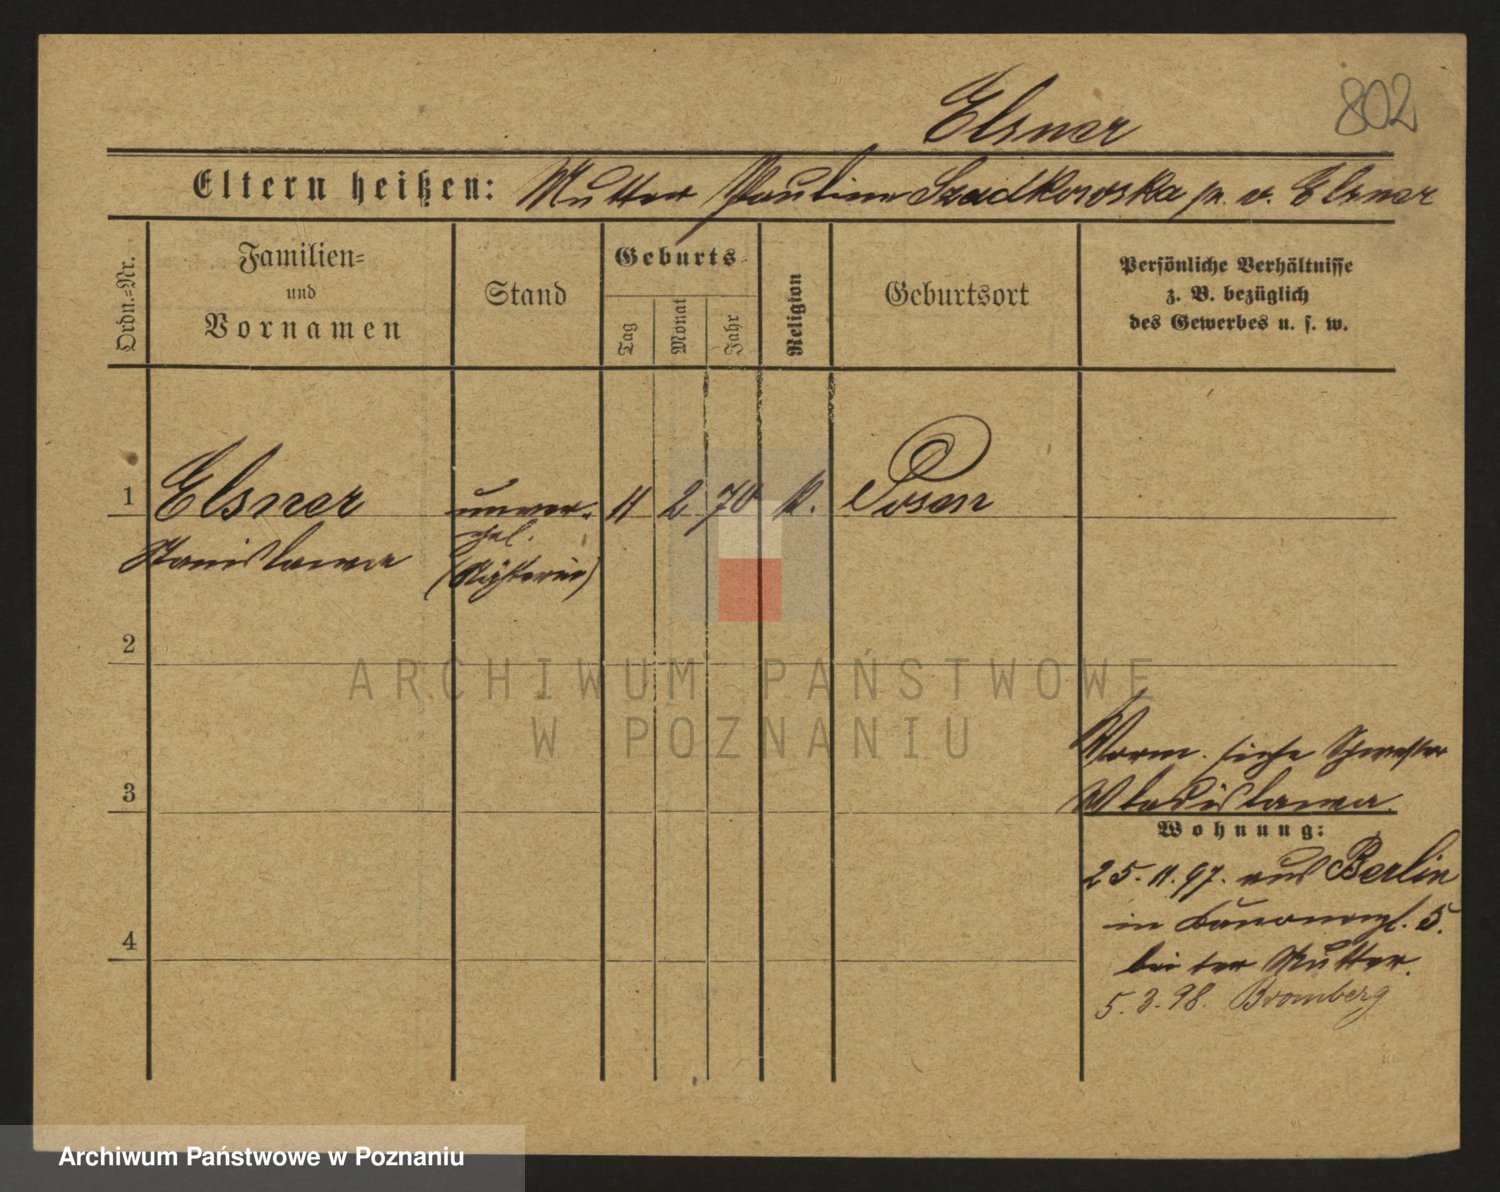 802
Elsner
Eltern heißen: Mutter Pauline Szadkowska pr. v. Elsner
Ordn.-Nr.
Familien-
und
Vornamen
Stand
Geburts-
Tag
Monat
Jahr
Religion
Geburtsort
Persönliche Verhältnisse
z. B. bezüglich
des Gewerbes u. s. w.
1 Elsner unver- 11 2 70 k. Posen
ehel.
Stanislawa
2
ARCHIWUM PAŃSTWOWE
W POZNANIU
Vorm. siehe Schwester
3 Wladislawa.
Wohnung:
25. 11. 97. aus Berlin
in 5.
4
bei der Mutter.
5. 3. 98. Bromberg
Archiwum Państwowe w Poznaniu